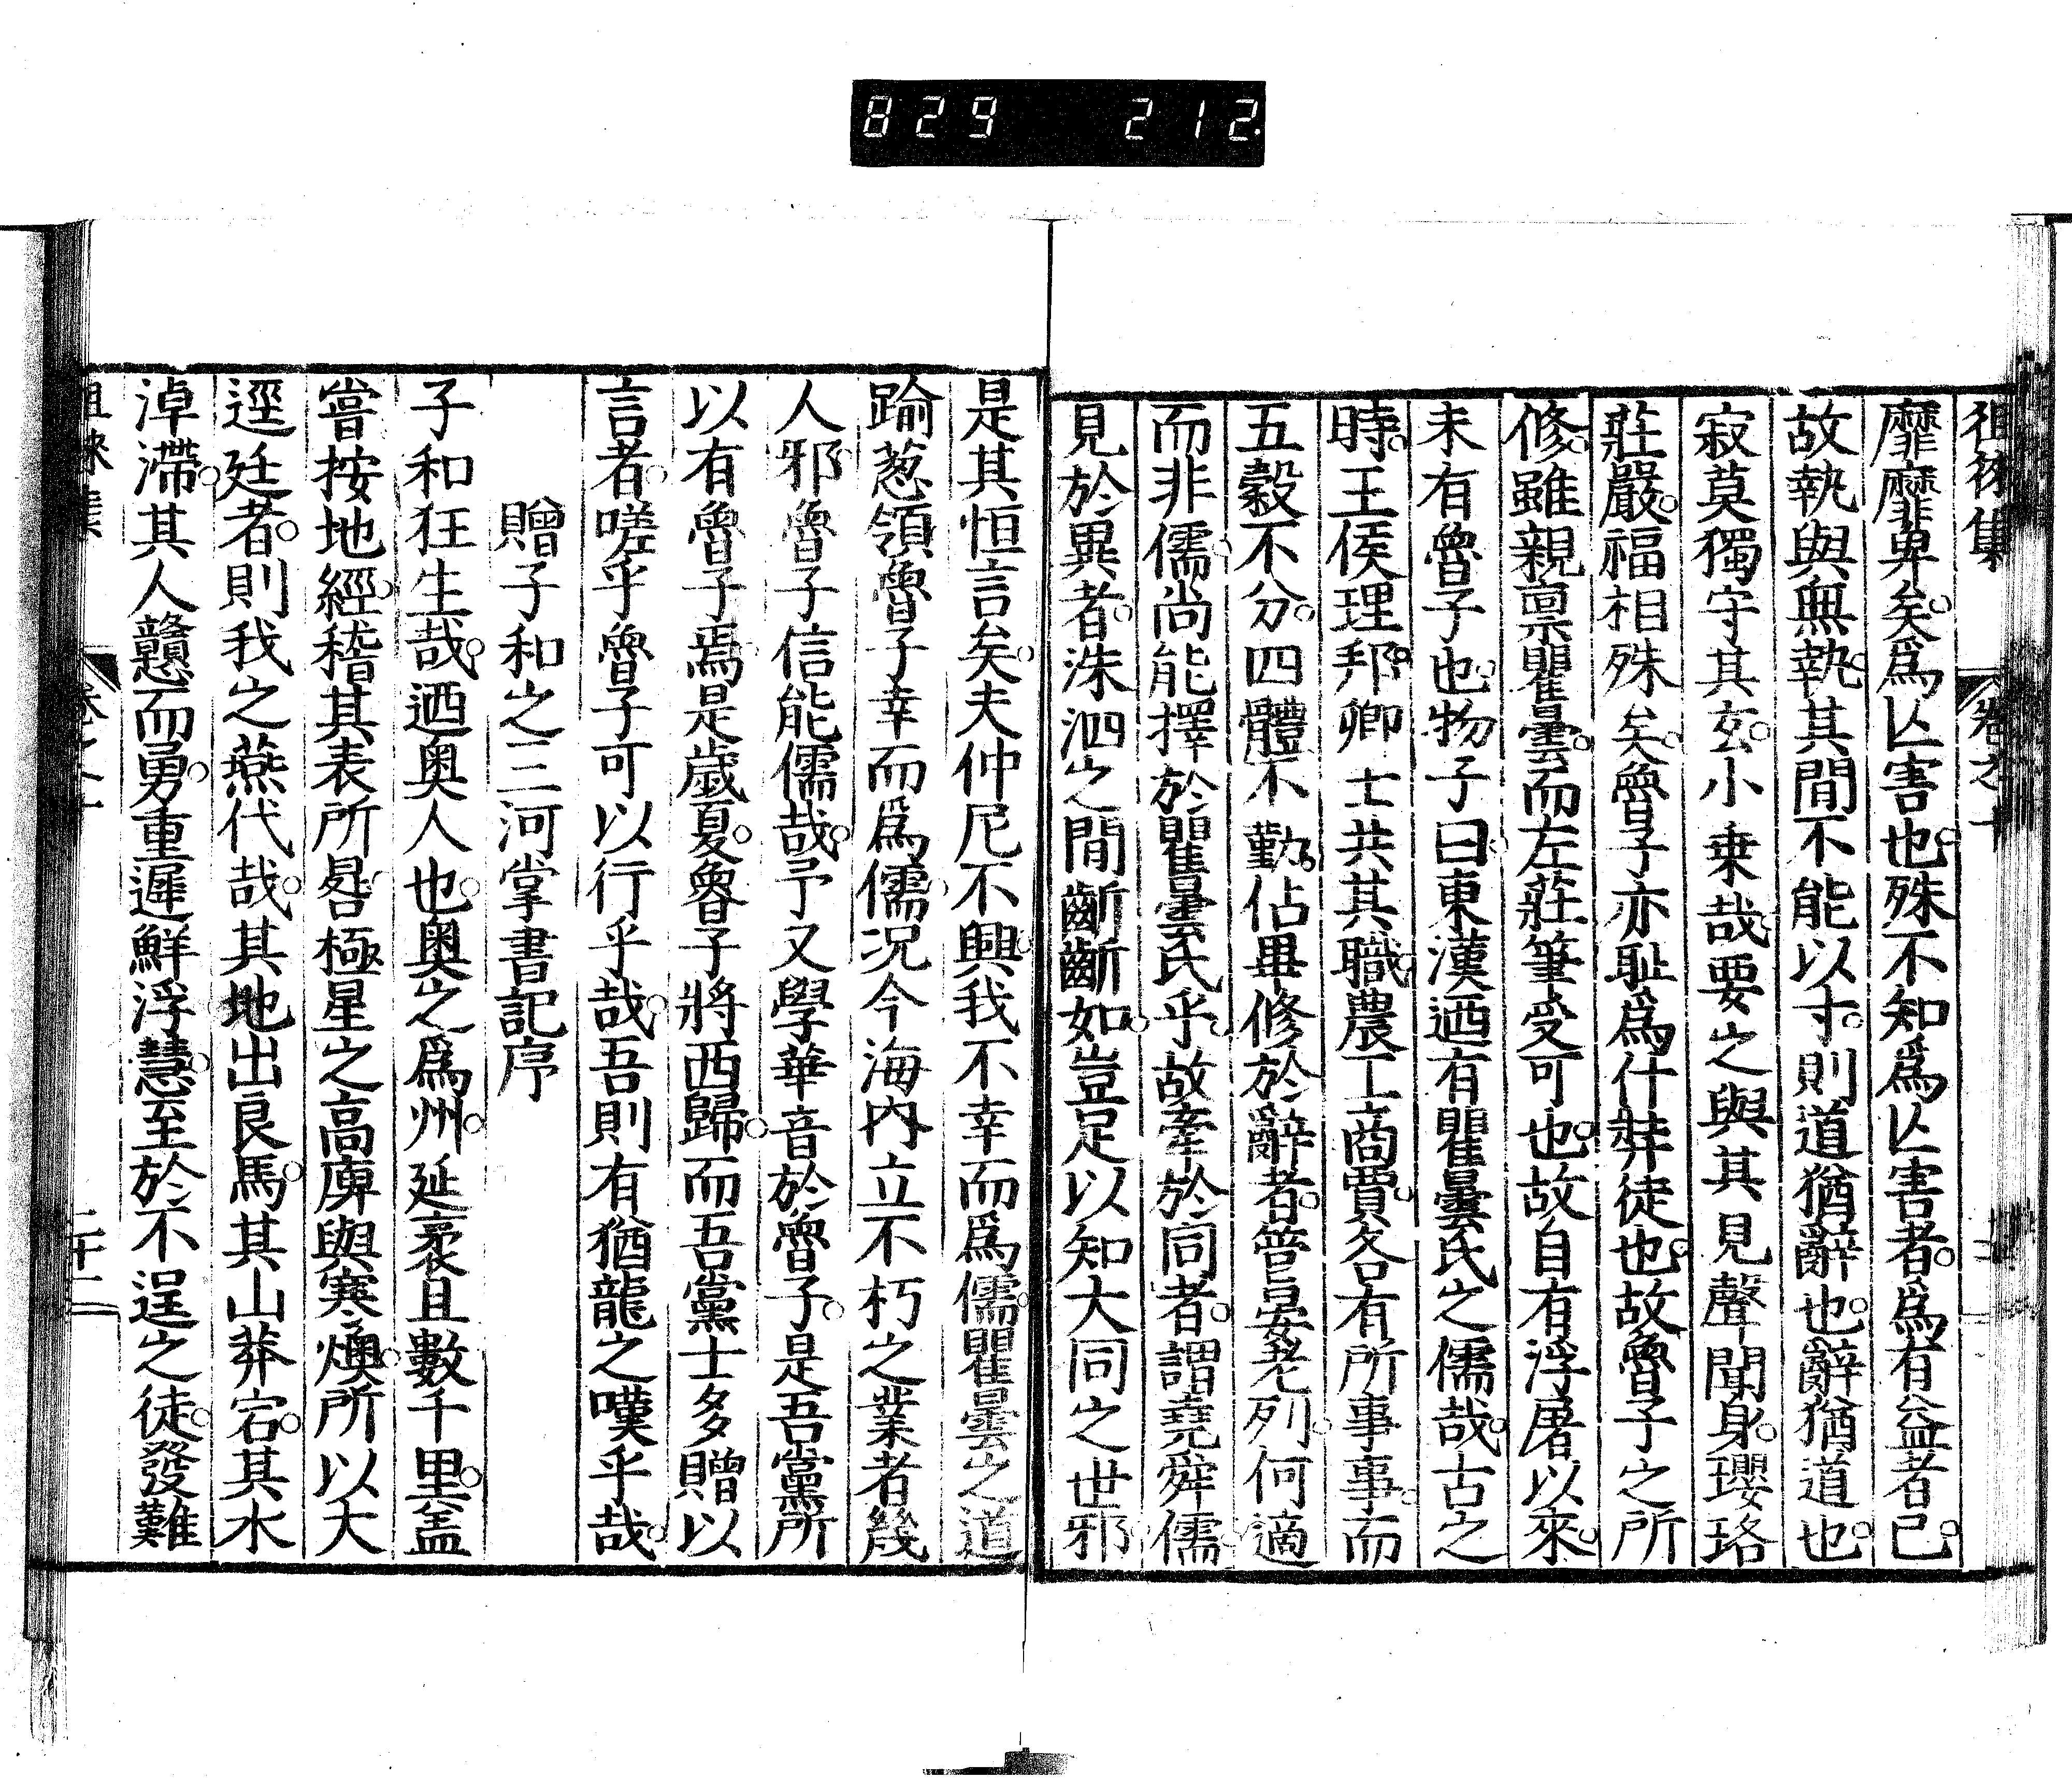 829 212
徂徠集 卷之十
靡靡卑矣。爲仏害也。殊不知爲仏害者。爲有益者已。
故執與無執。其間不能以寸。則道猶辭也。辭猶道也。
寂莫獨守其玄。小乗哉。要之與其見聲聞身。瓔珞
莊嚴。福相殊矣。魯子亦耻爲什弉徒也。故魯子之所
修。雖親禀瞿曇。而左莊筆受可也。故自有浮屠以來。
未有魯子也。物子曰。東漢迺有瞿曇氏之儒哉。古之
時。王侯理邦。卿士共其職。農工商賈。各有所事事。而
五穀不分。四體不勤。佔畢修於辭者。管晏老列。何適
而非儒。尚能擇於瞿曇氏乎。故牽於同者。謂堯舜儒。
見於異者。洙泗之間齗齗如。豈足以知大同之世邪。
是其恒言矣。夫仲尼不興。我不幸而爲儒。瞿曇之道
踰葱領。魯子幸而爲儒。况今海内立不朽之業者幾
人邪。魯子信能儒哉。予又學華音於魯子。是吾黨所
以有魯子焉。是歳夏。魯子將西歸。而吾黨士多贈以
言者。嗟乎魯子可以行乎哉。吾則有猶龍之嘆乎哉。
贈子和之三河掌書記序
子和狂生哉。迺奥人也。奥之爲州。延袤且數千里。盖
嘗按地經。稽其表所晷。極星之高庳與寒燠。所以大
逕廷者。則我之燕代哉。其地出良馬。其山莽宕。其水
淖滯。其人戇而勇。重遲鮮浮慧。至於不逞之徒。發難
徂徠集 卷之十 二十二